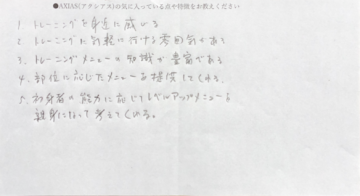 ●AXIAS(アクシアス)の気に入っている点や特徴をお教えください
1. トレーニングを身近に感じる
2. トレーニングに気軽に行ける雰囲気がある
3. トレーニングメニューの知識が豊富である
4. 部位に応じたメニューを提供してくれる。
5. 初心者の能力に応じてレベルアップメニューを
親身になって考えてくれる。